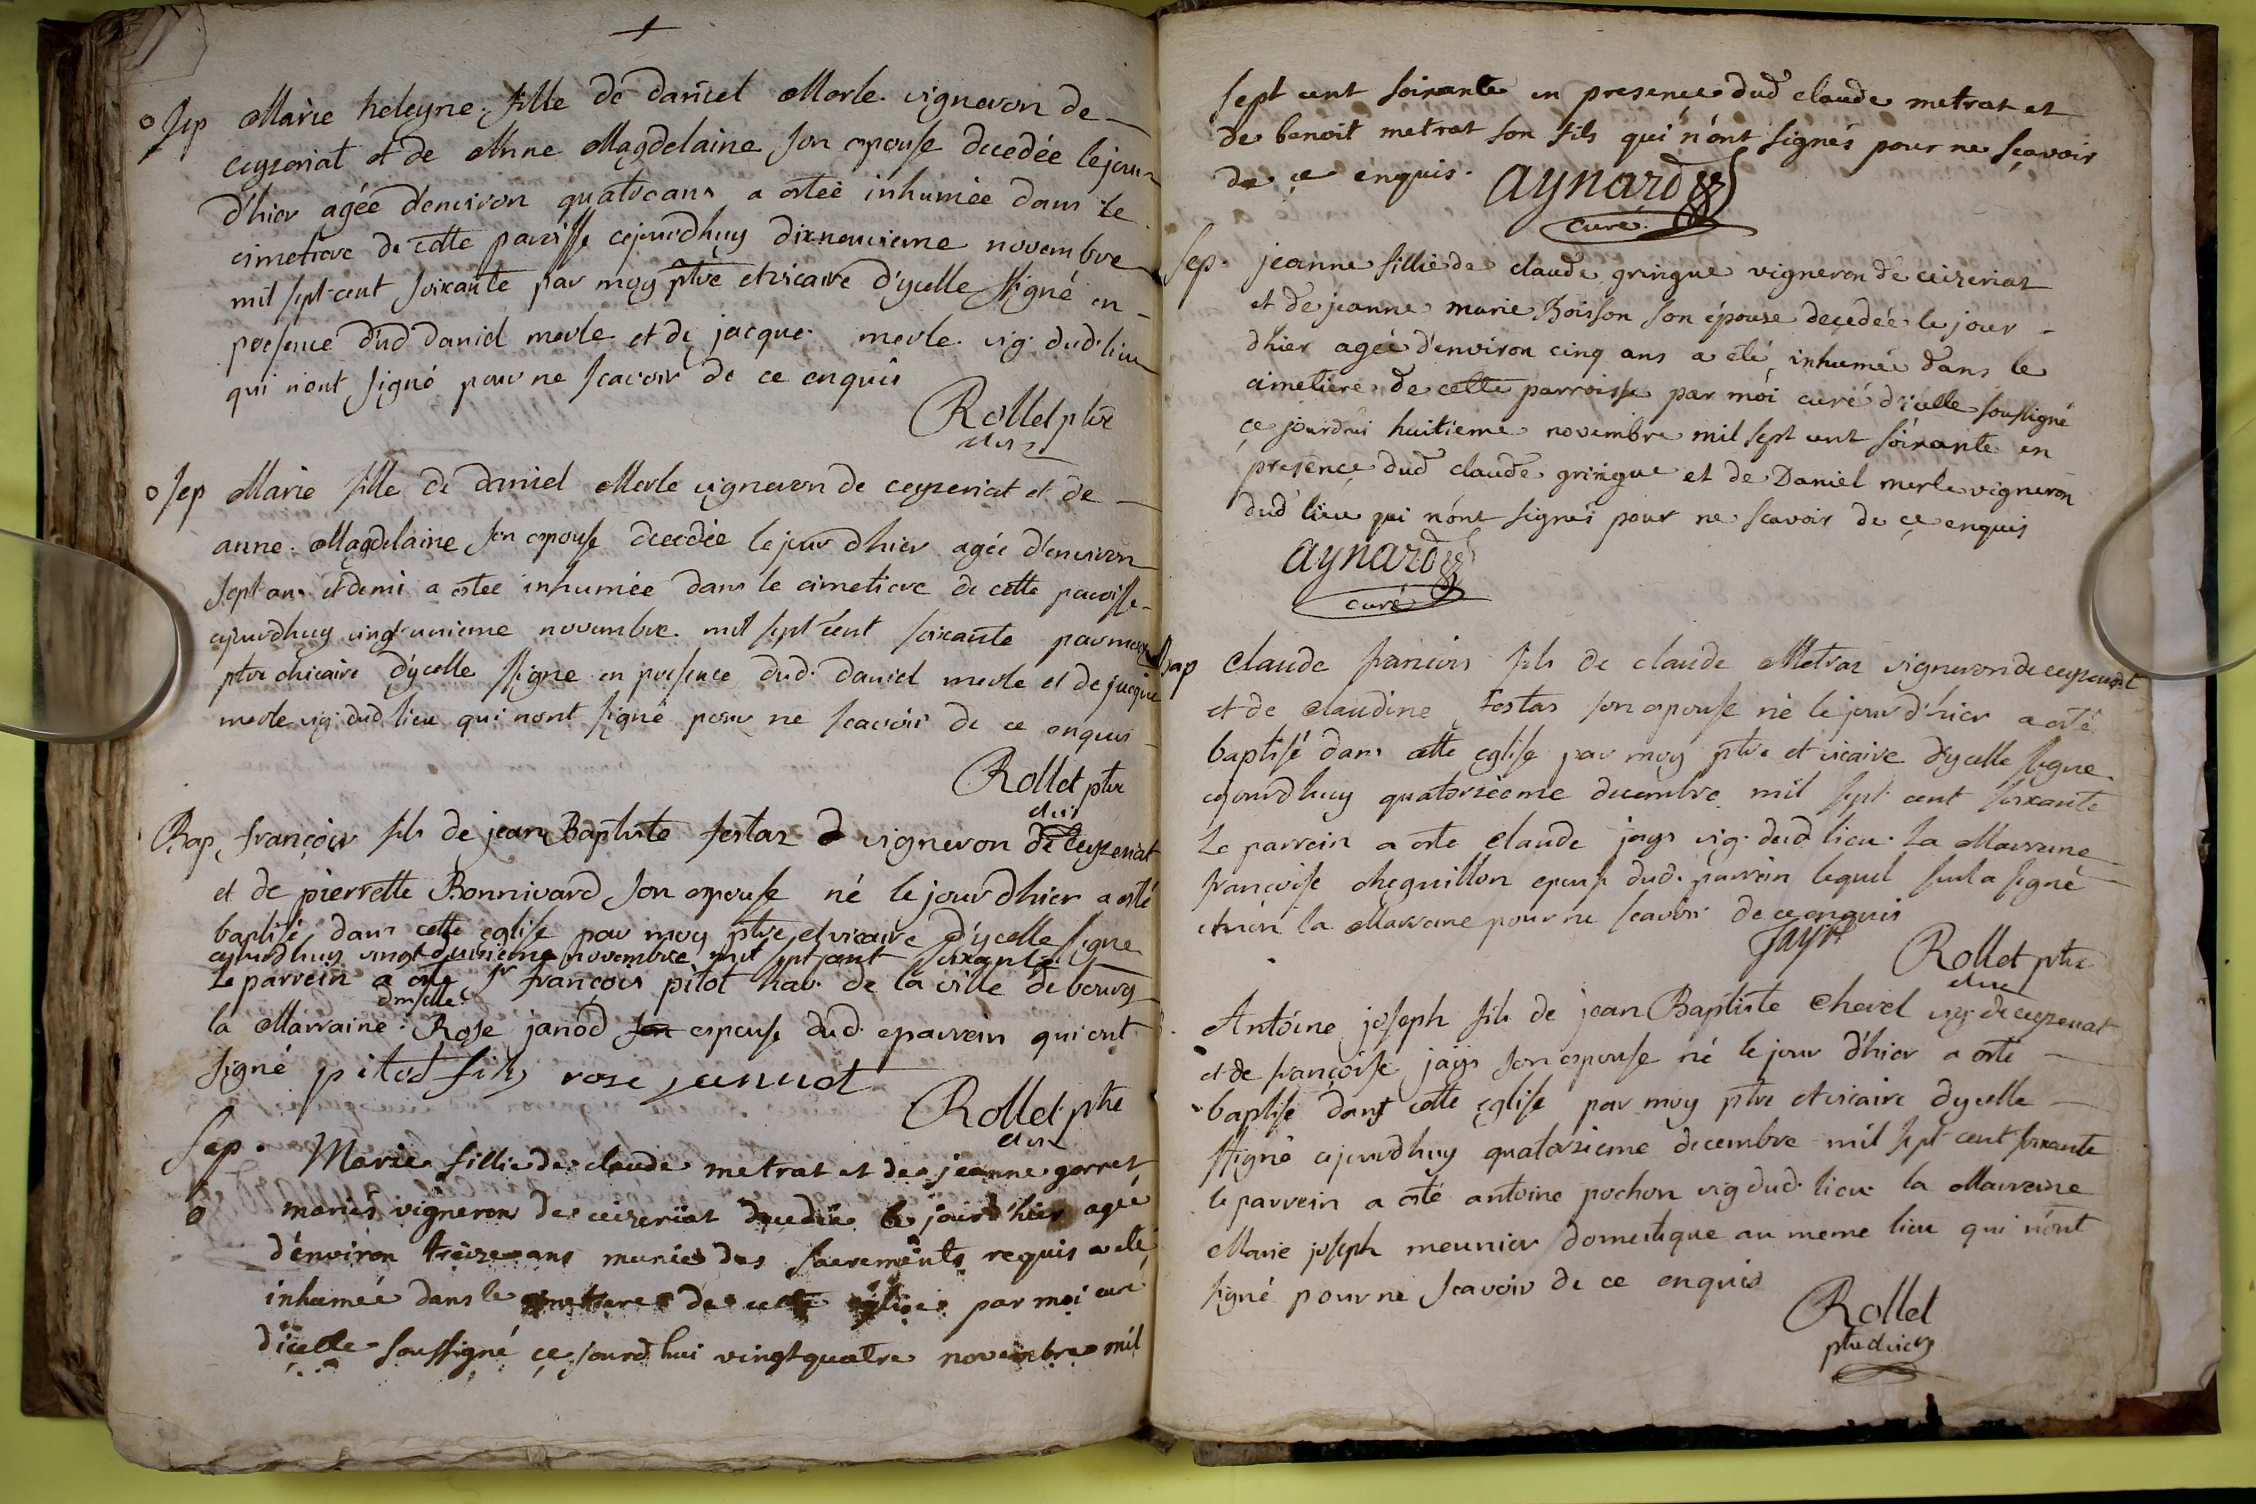 o Sep Marie heleyne fille de daniel Merle vigneron de
ceyzeriat et de Anne Magdelaine son epouse decedée le jour
d'hier agée d'environ quatre ans a estée inhumée dans le
cimetiere de cette paroisse cejourdhuy dixneuvieme novembre
mil sept cent soixante par moy ptre et vicaire d'ycelle ssigné en
presence dud daniel merle et de jacque merle vig. dud. lieu
qui n'ont signé pour ne scavoir de ce enquis
Rollet ptre
et vic
o Sep Marie fille de daniel Merle vigneron de ceyzeriat et de
anne Magdelaine son epouse decedée le jour d'hier agée d'environ
sept ans et demi a estee inhumée dans le cimetiere de cette paroisse
cejourdhuy vingt unieme novembre mil sept cent soixante par moy
ptre et vicaire d'ycelle ssigne en presence dud. daniel merle et de jacque
merle vig. dud lieu qui nont signé pour ne scavoir de ce enquis
Rollet ptre
et vic
Bap françois fils de jean Baptiste festaz vigneron de Ceyzeriat
et de pierrette Bonnivard son epouse né le jour dhier a esté
baptisé dans cette eglise par moy ptre et vicaire d'ycelle ssigne
cejourdhuy vingt novembre mil sept cent soixante
Le parrein a este sr françois pitot hab. de la ville de bourg
dmselle
la Marraine Rose janod son epouse dud. parrein qui ont
signé pitod fils rose jannot
Rollet ptre
et vic
Sep. Marie fillie de claude metrat et de jeanne gorret
o mariés vigneron de ceizeriat decedée le jourd'hier agée
d'environ treize ans munie des sacrements requis a été
inhumée dans le cimetiere de cette eglise par moi curé
d'icelle soussigné ce jourd'hui vingt quatre novembre mil
sept cent soixante en presence dud claude metrat et
de benoit metrat son fils qui n'ont signés pour ne sçavoir
de ce enquis.
aynard
curé
Sep. jeanne fillie de claude gringue vigneron de ceizeriat
et de jeanne marie Boisson son épouse decedée le jour
dhier agée d'environ cinq ans a été inhumée dans le
cimetiere de cette parroisse par moi curé d'icelle soussigné
ce jourd'ui huitieme novembre mil sept cent soixante en
presence dud claude gringue et de Daniel merle vigneron
dud lieu qui n'ont signés pour ne scavoir de ce enquis
aynard
curé
Bap Claude francois fils de claude Metraz vigneron de ceyzeriat
et de Claudine Festas son epouse né le jour d'hier a esté
baptisé dans cette eglise par moy ptre et vicaire d'ycelle ssigne
cejourdhuy quatorzeeme decembre mil sept cent soixante
Le parrein a este Claude jays vig. dud lieu. La Marreine
francoise cheguillon epouse dud. parrein lequel seul a signé
et non la Marreine pour ne scavoir de ce enquis
Jays
Rollet ptre
et vic
Antoine joseph fils de jean Baptiste Chevel vig. de ceyzeriat
et de françoise jays son epouse né le jour d'hier a esté
baptisé dans cette eglise par moy ptre et vicaire d'ycelle
ssigné cejourdhuy quatorzieme decembre mil sept cent soixante
le parrein a esté antoine pochon vig dud. lieu la Marreine
Marie joseph meunier domestique au meme lieu qui n'ont
signé pour ne scavoir de ce enquis
Rollet
ptre et vic